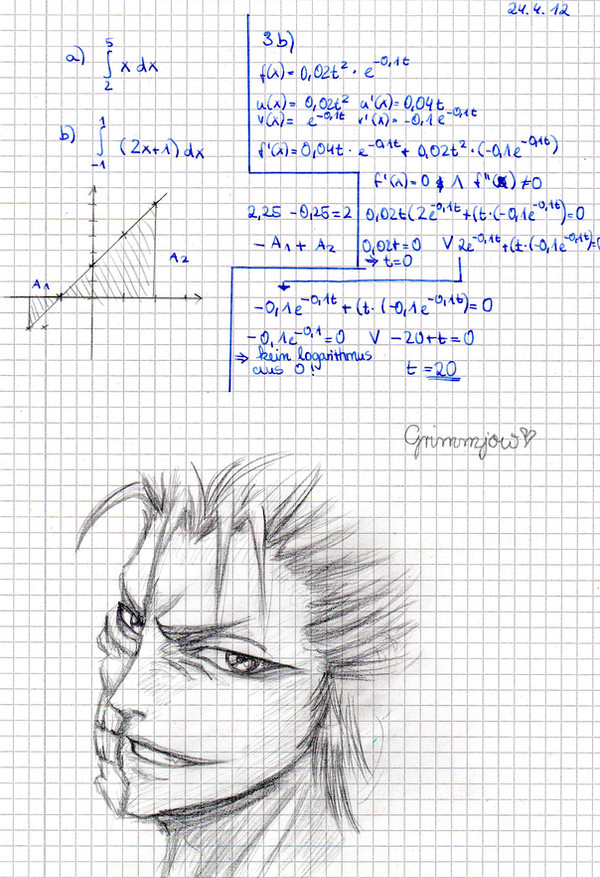 24.4.12
a) 5∫2 x dx
b) 1∫-1 (2x+1) dx
A1
A2
3b)
f(x) = 0,02t² · e^-0,1t
u(x) = 0,02t² u'(x) = 0,04t
v(x) = e^-0,1t v'(x) = -0,1e^-0,1t
f'(x) = 0,04t · e^-0,1t + 0,02t² · (-0,1e^-0,1t)
f'(x) = 0 ∧ f''(x) ≠ 0
2,25 - 0,25 = 2
- A1 + A2
0,02t(2e^-0,1t + (t·(-0,1e^-0,1t) = 0
0,02t = 0 ∨ 2e^-0,1t + (t·(-0,1e^-0,1t) = 0
⇒ t = 0
-0,1e^-0,1t + (t·(-0,1e^-0,1t) = 0
-0,1e^-0,1 = 0 ∨ -20 + t = 0
⇒ kein logarithmus
aus 0!
t = 20
Grimmjow♡